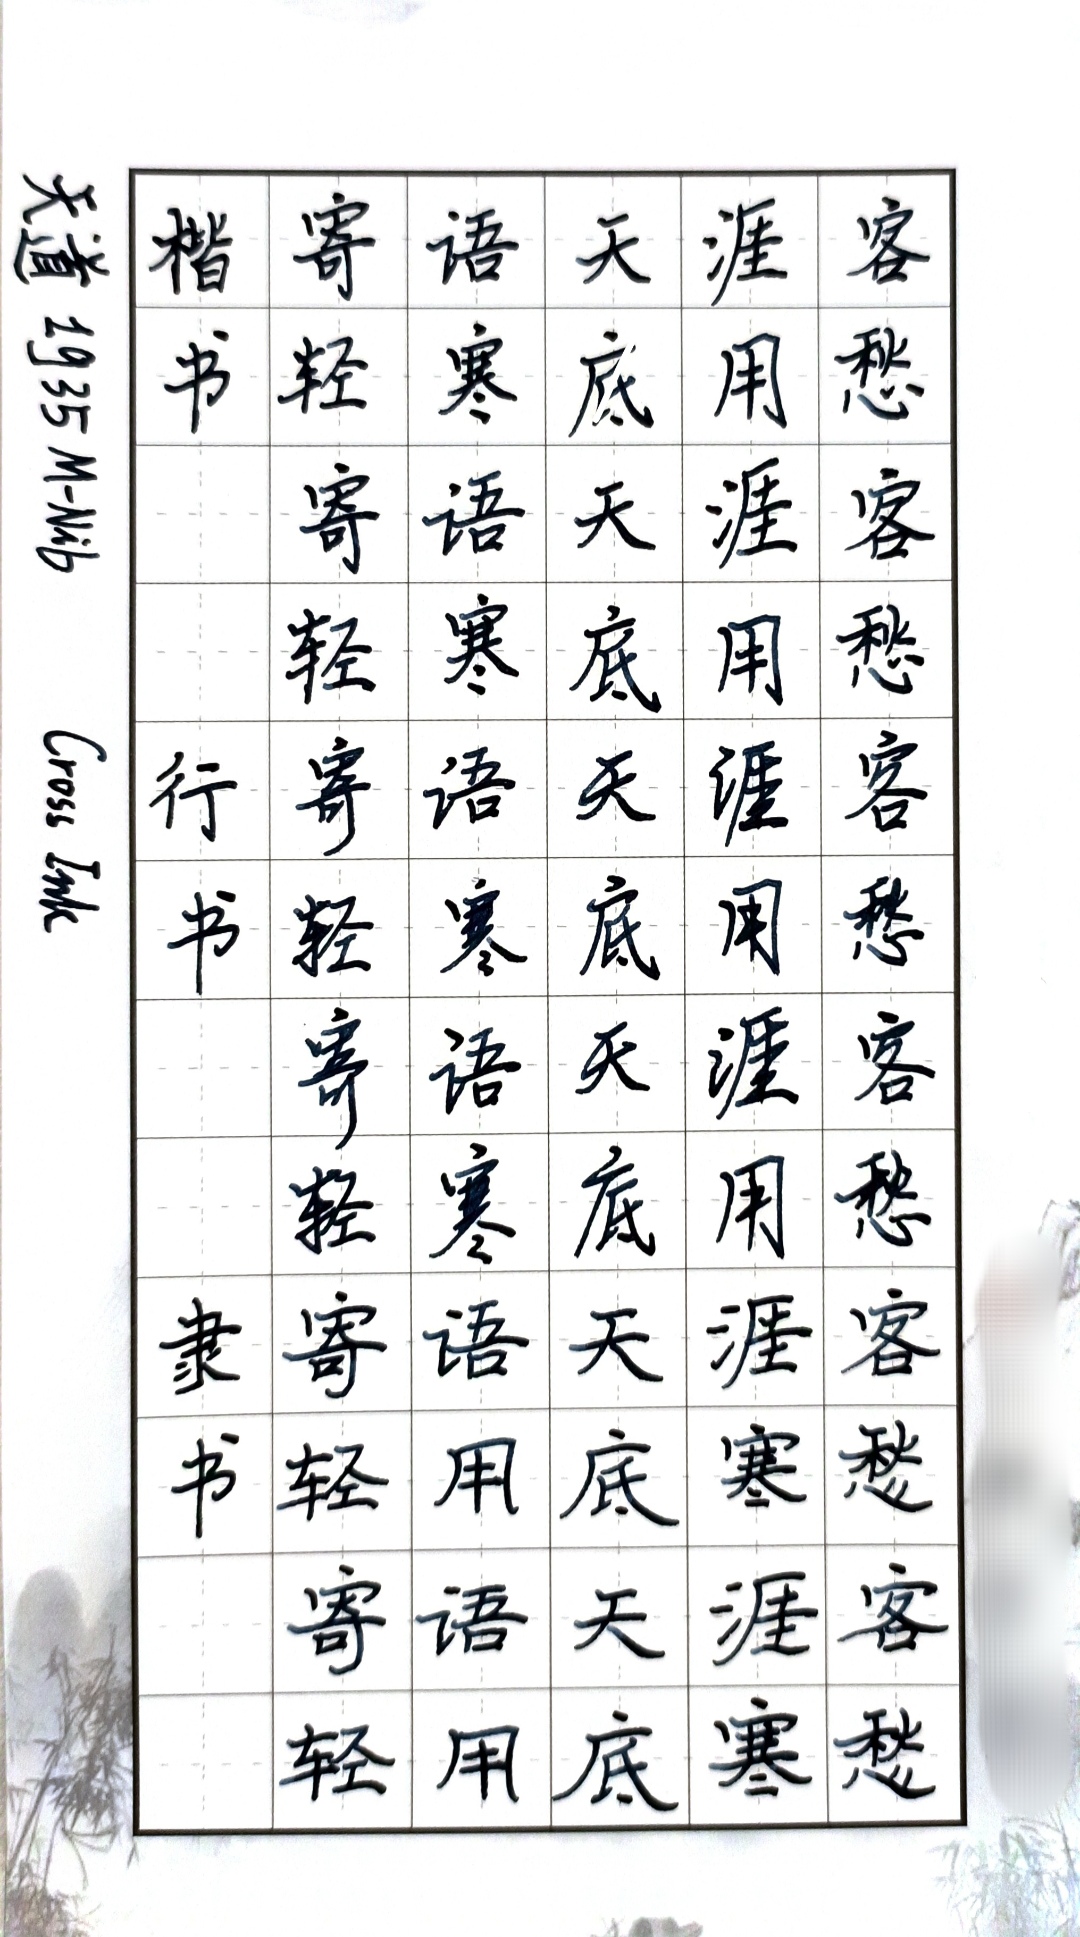 天道 1935 M-Nib Cross Ink
楷寄语天涯客
书轻寒底用愁
寄语天涯客
轻寒底用愁
行寄语天涯客
书轻寒底用愁
寄语天涯客
轻寒底用愁
隶寄语天涯客
书轻用底寒愁
寄语天涯客
轻用底寒愁